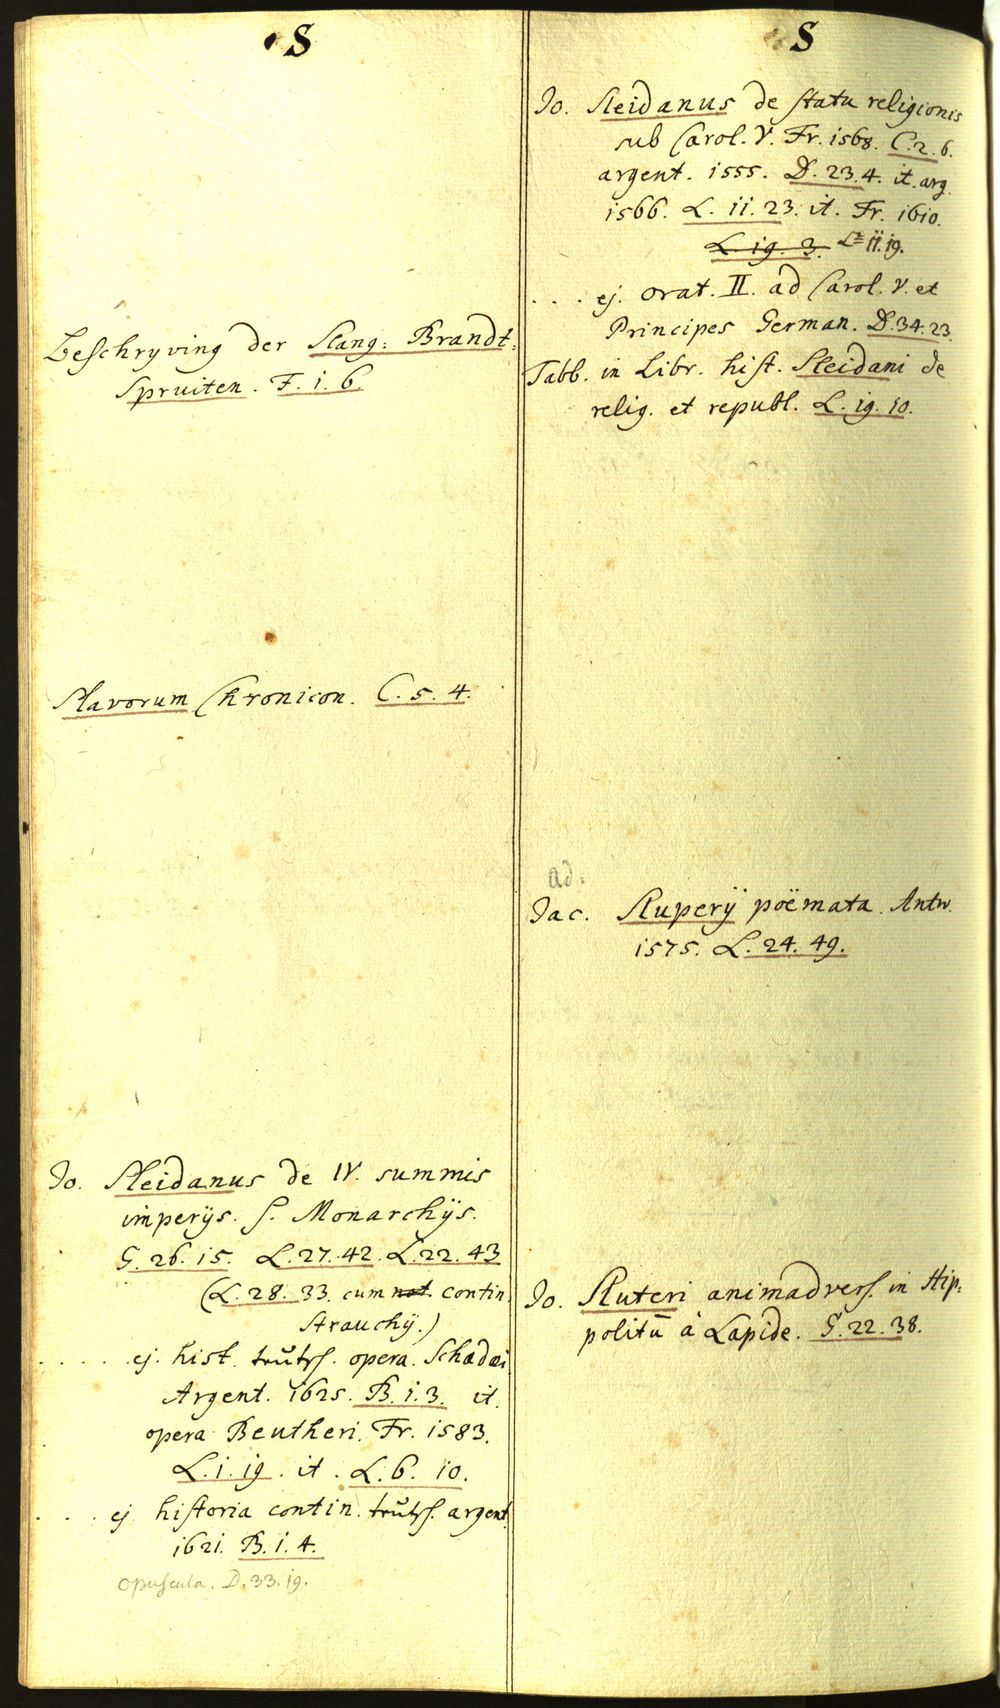 S
Beschryving der Slang: Brandt:
Spruiten. F. 1. 6.
Slavorum Chronicon. C. 5. 4.
Jo. Sleidanus de IV. summis
imperijs. s. Monarchijs.
G. 26. 15. L. 27. 42. L. 22. 43
(L. 28. 33. cum not. contin.
Strauchij.)
. . . . . ej. hist. teutsch. opera. Schadæi
Argent. 1625. B. 1. 3. it.
opera Beutheri. Fr. 1583.
L. 1. 19. it. L. 6. 10.
. . . . ej historia contin. teutsch. argent.
1621. B. 1. 4.
opuscula. D. 33. 19.
S
Jo. Sleidanus de statu religionis
sub Carol. V. Fr. 1568. C. 2. 6.
argent. 1555. D. 23. 4. it. arg.
1566. L. 11. 23. it. Fr. 1610.
L. 19. 3. L. 11. 19.
. . . . ej. orat. II. ad Carol. V. et
Principes German. D. 34. 23.
Tabb. in Libr. hist. Sleidani de
relig. et republ. L. 19. 10.
ad.
Jac. Sluperij poëmata. Antw.
1575. L. 24. 49.
Jo. Sluteri animadvers. in Hip:
politū à Lapide. G. 22. 38.